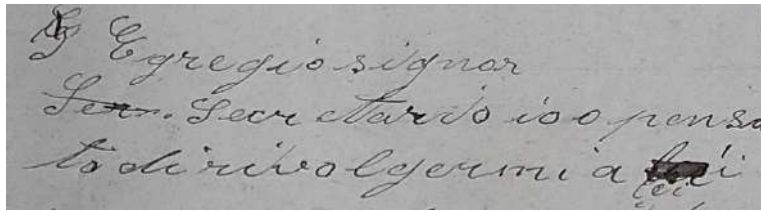 Egregio signor
Ser. Secretario io o pensa
to di rivolgermi a lei